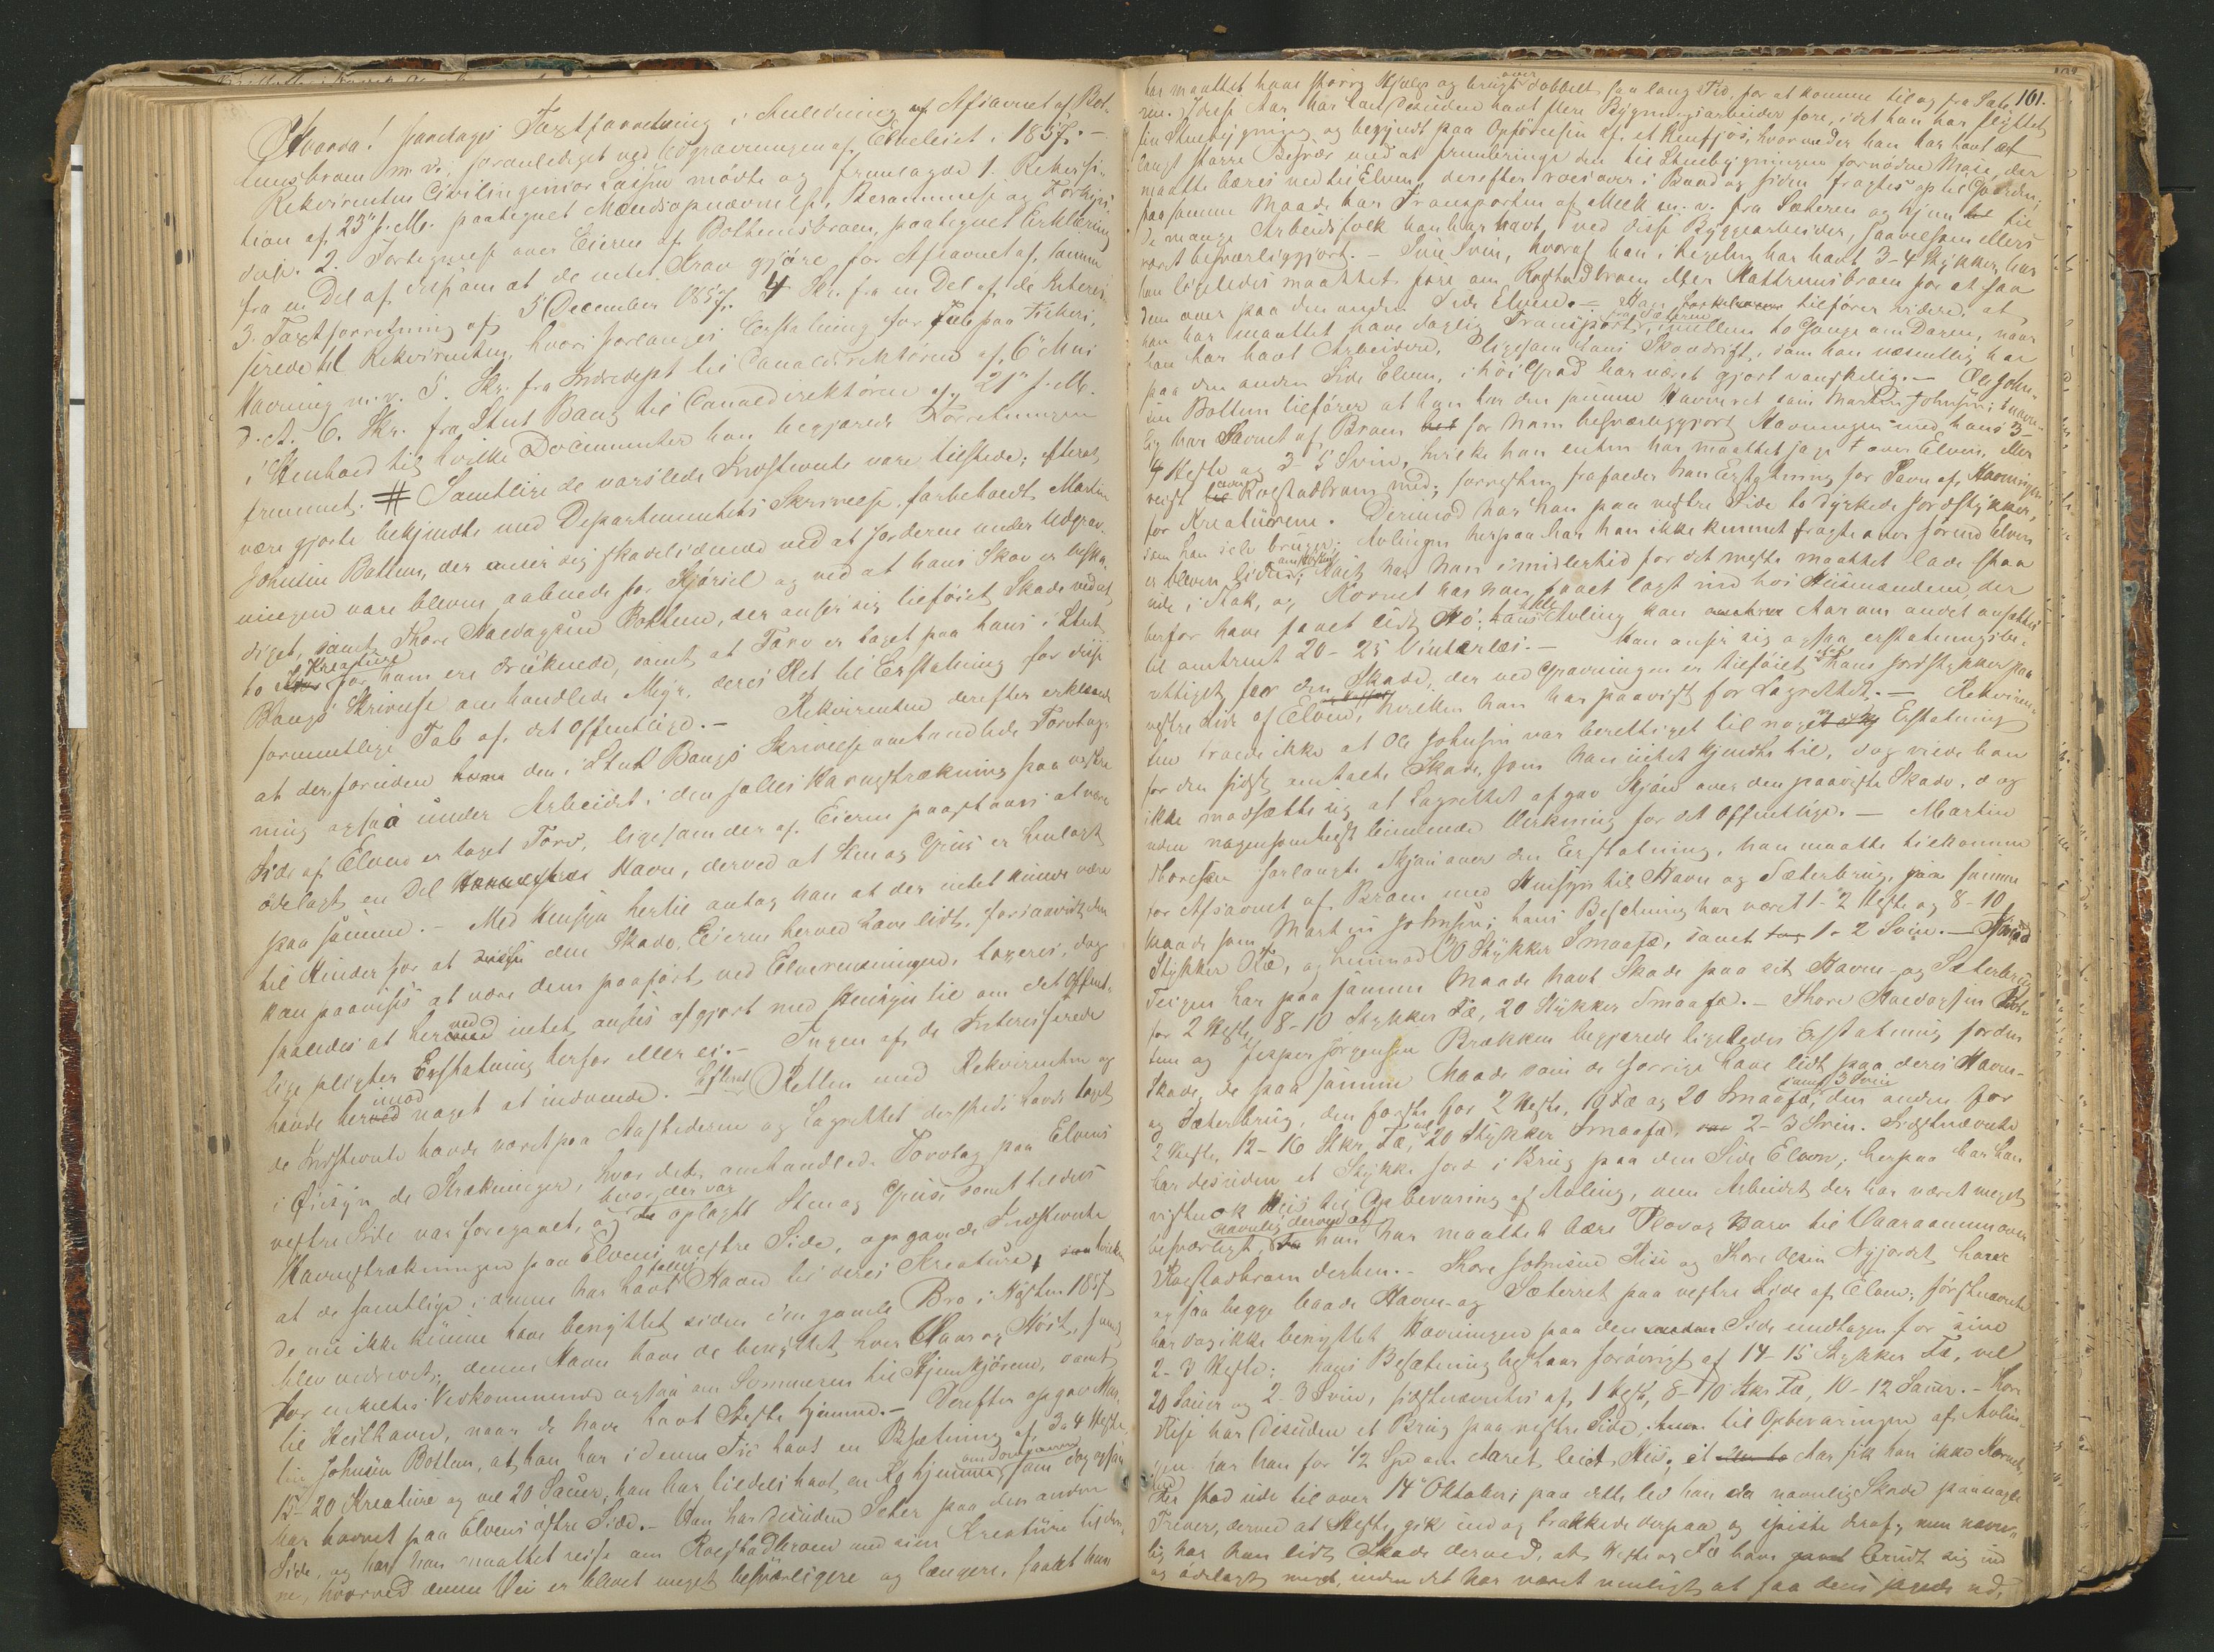 foretages Taxtforretning i Anledning af Afsavnet af Bot-
tensbroen m. v. foranlediget ved Udgravningen af Elveleiet i 1857.-
Rekvirenten Civilingeniør mødte og fremlagde 1. Rekvisi-
tion af 23de f. M. paategnet Mændsopnævnelse, Berammelse og Forkyn-
delse. 2. Fortegnelse over Eierne af Bottensbroen, paategnet Erklæring
fra en Del af at de intet Krav gjøre for Afsavnet af samme
3. Taxtforretning af 5 December 1857. 4 Skr. fra en Del af de Interes-
serede til Rekvirenten, hvori forlanges Erstatning for Tab paa Fiskeri,
Havning m. v. 5. Skr. fra Indredept til Canaldirektøren af 6te Mai
d. A. 6. Skr. fra Bang til Canaldirektøren af 21de f. M.
i Henhold til hvilke Documenter han begjærede Forretningen
fremmet. # Samtlige de varslede Indstevnte vare tilstede; efterat
være gjorte bekjendte med Departementets Skrivelse, forbeholdt Martin
Johnsen Bottem, der anser sig skadelidende ved at Jorderne under Udgrav-
ningen vare blevne aabnede for Kjørsel og ved at hans Skov er beska-
diget, samt Thore Halvagsen Bottem, der anser sig tilføiet Skade ved at
to Kreature for ham ere druknede, samt at Torv er taget paa hans i
Bangs Skrivelse omhandlede deres Ret til Erstatning for disse
formentlige Tab af det Offentlige.- Rekvirenten derefter erklærede
at der foruden den i Bangs Skrivelse omhandlede Torvtag-
ning ogsaa under Arbeidet i den fælles Havnestrækning paa vestre
Side af Elven er taget Torv, ligesom der af Eierne paastaaes at være
ødelagt en Del Havn, derved at Sten og Gruus er henlagt
paa samme.- Med Hensyn hertil antog han at der intet kunde være
til Hinder for at den Skade, Eierne herved have lidt, forsaavidt den
kan paavises at være dem paaført ved Elverensningen, taxeres, dog
saaledes at herved intet ansees afgjort med Hensyn til om det Offent-
lige pligter Erstatning herfor eller ei.- Ingen af de Interesserede
havde herimod noget at indvende. Efterat Retten med Rekvirenten og
de Indstevnte havde været paa Aastederne og Lagrettet dersteds havde taget
i Øiesyn de Strækninger, hvor det omhandlede Torvtag paa Elvens
vestre Side var foregaaet, og hvor der var oplagt Sten og Gruus samt
Havnestrækningen paa Elvens vestre Side, opgave de Indstevnte
at de samtlige i denne har havt fælles Havn til deres Kreature, hvilken
de nu ikke kunne have benyttet siden den gamle Bro i Høsten 1857
blev nedrevet; denne Havn have de benyttet hver Vaar og Høst, samt
for enkeltes Vedkommende ogsaa om Sommeren til Hjemkjørene, samt
til Hestehavn, naar de have havt Heste hjemme.- Derefter opgav Mar-
tin Johnsen Bottem, at han har i denne Tid havt en Besætning af 3 a 4 Heste
15-20 Kreature og vel 20 Sauer; han har tildels havt en Ko hjemme om Sommeren, som dog ogsaa
har havnet paa Elvens østre Side.- Han har desuden Sæter paa den anden
Side, og har han maattet reise om Rogstadbroen med sine Kreature til den-
ne, hvorved denne Vei er blevet meget besværligere og længere, saaat han
101.
har maattet have større Hjælp og brugt over dobbelt saa lang Tid, for at komme til og fra Sæte-
ren. I disse Aar har han desuden havt flere Bygningsarbeider fore, idet han har flyttet
sin Stuebygning og begyndt paa Opførelsen af et Steenfjøs, hvorved han har havt et
langt større Besvær med at frembringe den til Stuebygningen fornødne Mose, der
maatte bæres ned til Elven, derefter roes over i Baad og siden fragtes op til Gaarden;
paa samme Maade har Transporten af Melk m. v. fra Sæteren og hjem til
de mange Arbeidsfolk han har havt ved disse Byggearbeider, saavelsom ellers
været besværliggjort.- Sine Svin, hvoraf han i Regelen har havt 3-4 Stykker, har
han ligeledes maattet føre om Rogstadbroen eller Hattremsbroen for at faa
dem over paa den anden Side Elven.- tilfører videre, at
han har maattet have daglig Transport fra Sæteren, imellem to Gange om Dagen, naar
han har havt Arbeidere, ligesom hans Skovdrift, som han væsentlig har
paa den anden Side Elven, i høi Grad har været gjort vanskelig.- Ole John-
sen Bottem tilfører at han har den samme Havneret som Martin Johnsen; navn-
lig har Savnet af Broen for ham besværliggjort Havningen med hans 3-
4 Heste og 3-5 Svin, hvilke han enten har maattet jage over Elven, eller
reist over Rogstadbroen med; forresten frafalder han Erstatning for Savn af Havningen
for Kreaturene. Derimod har han paa vestre Side to dyrkede Jordstykker,
som han selv bruger. Avlingen herpaa har han ikke kunnet fragte over førend Elven
er bleven isen; Høiet har han imidlertid for det meste maattet lade staa
ude i Stak, og Kornet har han faaet lagt ind hos Huusmændene, der
herfor have faaet lidt Hø; hans hele Avling kan Aar om andet ansættes
til omtrent 20-25 Vinterlæs.- Han anser sig ogsaa erstatningsbe-
rettiget for den Skade, der ved Gravningen er tilføiet hans Jordstykker paa
vestre Side af Elven, hvilken han har paavist for Lagrettet.- Rekviren-
ten troede ikke at Ole Johnsen var berettiget til nogen Erstatning
for den sidst omtalte Skade, som han intet kjendte til, dog vilde han
ikke modsætte sig at Lagrettet afgav Skjøn over den paaviste Skade, dog
uden nogensomhelst bindende Virkning for det Offentlige.- Martin
Thoresen forlangte Skjøn over den Erstatning, han maatte tilkomme
for Afsavnet af Broen med Hensyn til Havn og Sæterbrug, paa samme
Maade som Martin Johnsen; hans Besætning har været 1-2 Heste og 8-10
Stykker Fæ, og henimod 20 Stykker Smaafæ, samt 1-2 Svin.-
Teigen har paa samme Maade havt Skade paa sit Havne- og Sæterbrug
for 2 Heste, 8-10 Stykker Fæ, 20 Stykker Smaafæ.- Thore Halvagsen Bot-
tem og Jesper Jørgensen Brækken begjærede ligeledes Erstatning for den
Skade, de paa samme Maade som de forrige have lidt paa deres Havne-
og Sæterbrug, den første for 2 Heste, 19 Fæ og 20 Smaafæ, samt 3 Svin den anden for
2 Heste, 12-16 Stkr. Fæ, 20 Stykker Smaafæ, 2-3 Svin. Sidstnævnte
har desuden et Stykke Jord i Brug paa den Side Elven; herpaa har han
vistnok Huus til Opbevaring af Avling, men Arbeidet der har været meget
besværligt, navnlig derved at han har maattet bære Plov og Harv til Vaaraannen over
Rogstadbroen derhen.- Thore Johnsen Rise og Thore Olsen Nyjordet have
ogsaa begge baade Havne- og Sæterret paa vestre Side af Elven; førstnævnte
har dog ikke benyttet Havningen paa den Side undtagen for sine
2-3 Heste; hans Besætning bestaar forøvrigt af 14-15 Stykker Fæ, vel
20 Sauer og 2-3 Svin, sidstnævntes af 1 Hest, 8-10 Stkr Fæ, 10-12 Sauer.- Thore
Rise har desuden et Brug paa vestre Side; til Opbevaringen af Avlin-
gen har han for 1/2 Spd om Aaret leiet Huus; et Aar fik han ikke Kornet
stod ude til over 14de Oktober; paa dette led han da navnlig Skade paa nogle
derved at Heste gik ind og trakkede derpaa og spiste deraf; men navn-
lig har han lidt Skade derved, at Heste og Fæ have brudt sig ind
og ødelagt meget, inden det har været muligt at faa dem jagede ud,